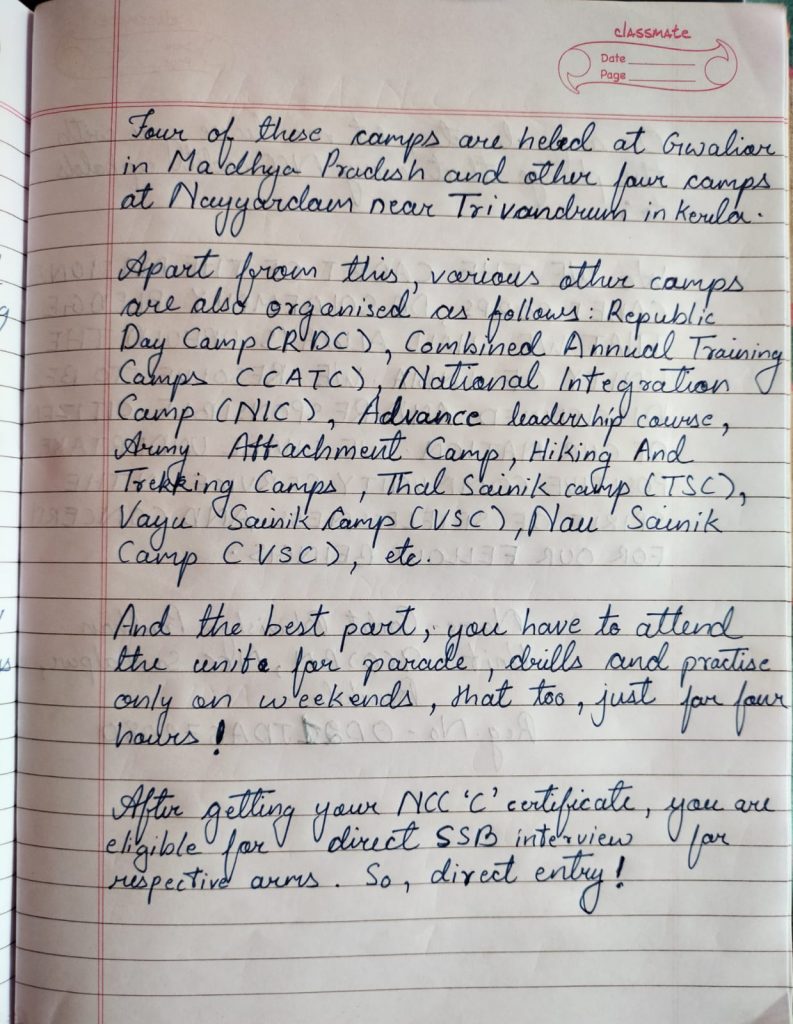 classmate
Date
Page
Four of these camps are held at Gwalior
in Madhya Pradesh and other four camps
at Nayyardam near Trivandrum in Kerula.
Apart from this, various other camps
are also organised as follows: Republic
Day Camp (RDC), Combined Annual Training
Camps (CATC), National Integration
Camp (NIC), Advance leadership course,
Army Attachment Camp, Hiking And
Trekking Camps, Thal Sainik camp (TSC),
Vayu Sainik Camp (VSC), Nau Sainik
Camp (VSC), etc.
And the best part, you have to attend
the unite for parade, drills and practise
only on weekends, that too, just for four
hours!
After getting your NCC 'C' certificate, you are
eligible for direct SSB interview for
respective arms. So, direct entry!